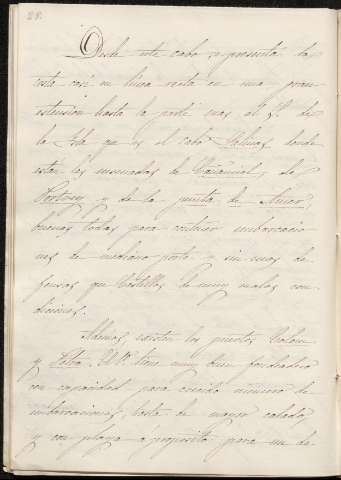 28.
Desde este cabo se presenta la
costa casi en linea recta en una gran
estensión hasta la parte mas al S. de
la Isla que es el cabo Salinas, donde
están las ensenadas de de
y de la punta de Amer,
buenas todas para contener embarcacio
nes de mediano porte y sin mas de
fensas que Castillos de muy malas con
diciones.
Además, existen los puertos Colom
y Petra. El 1º tiene muy buen fondeadero
con capacidad para crecido número de
embarcaciones, hasta de mayor calado,
y con playa á propósito para un de